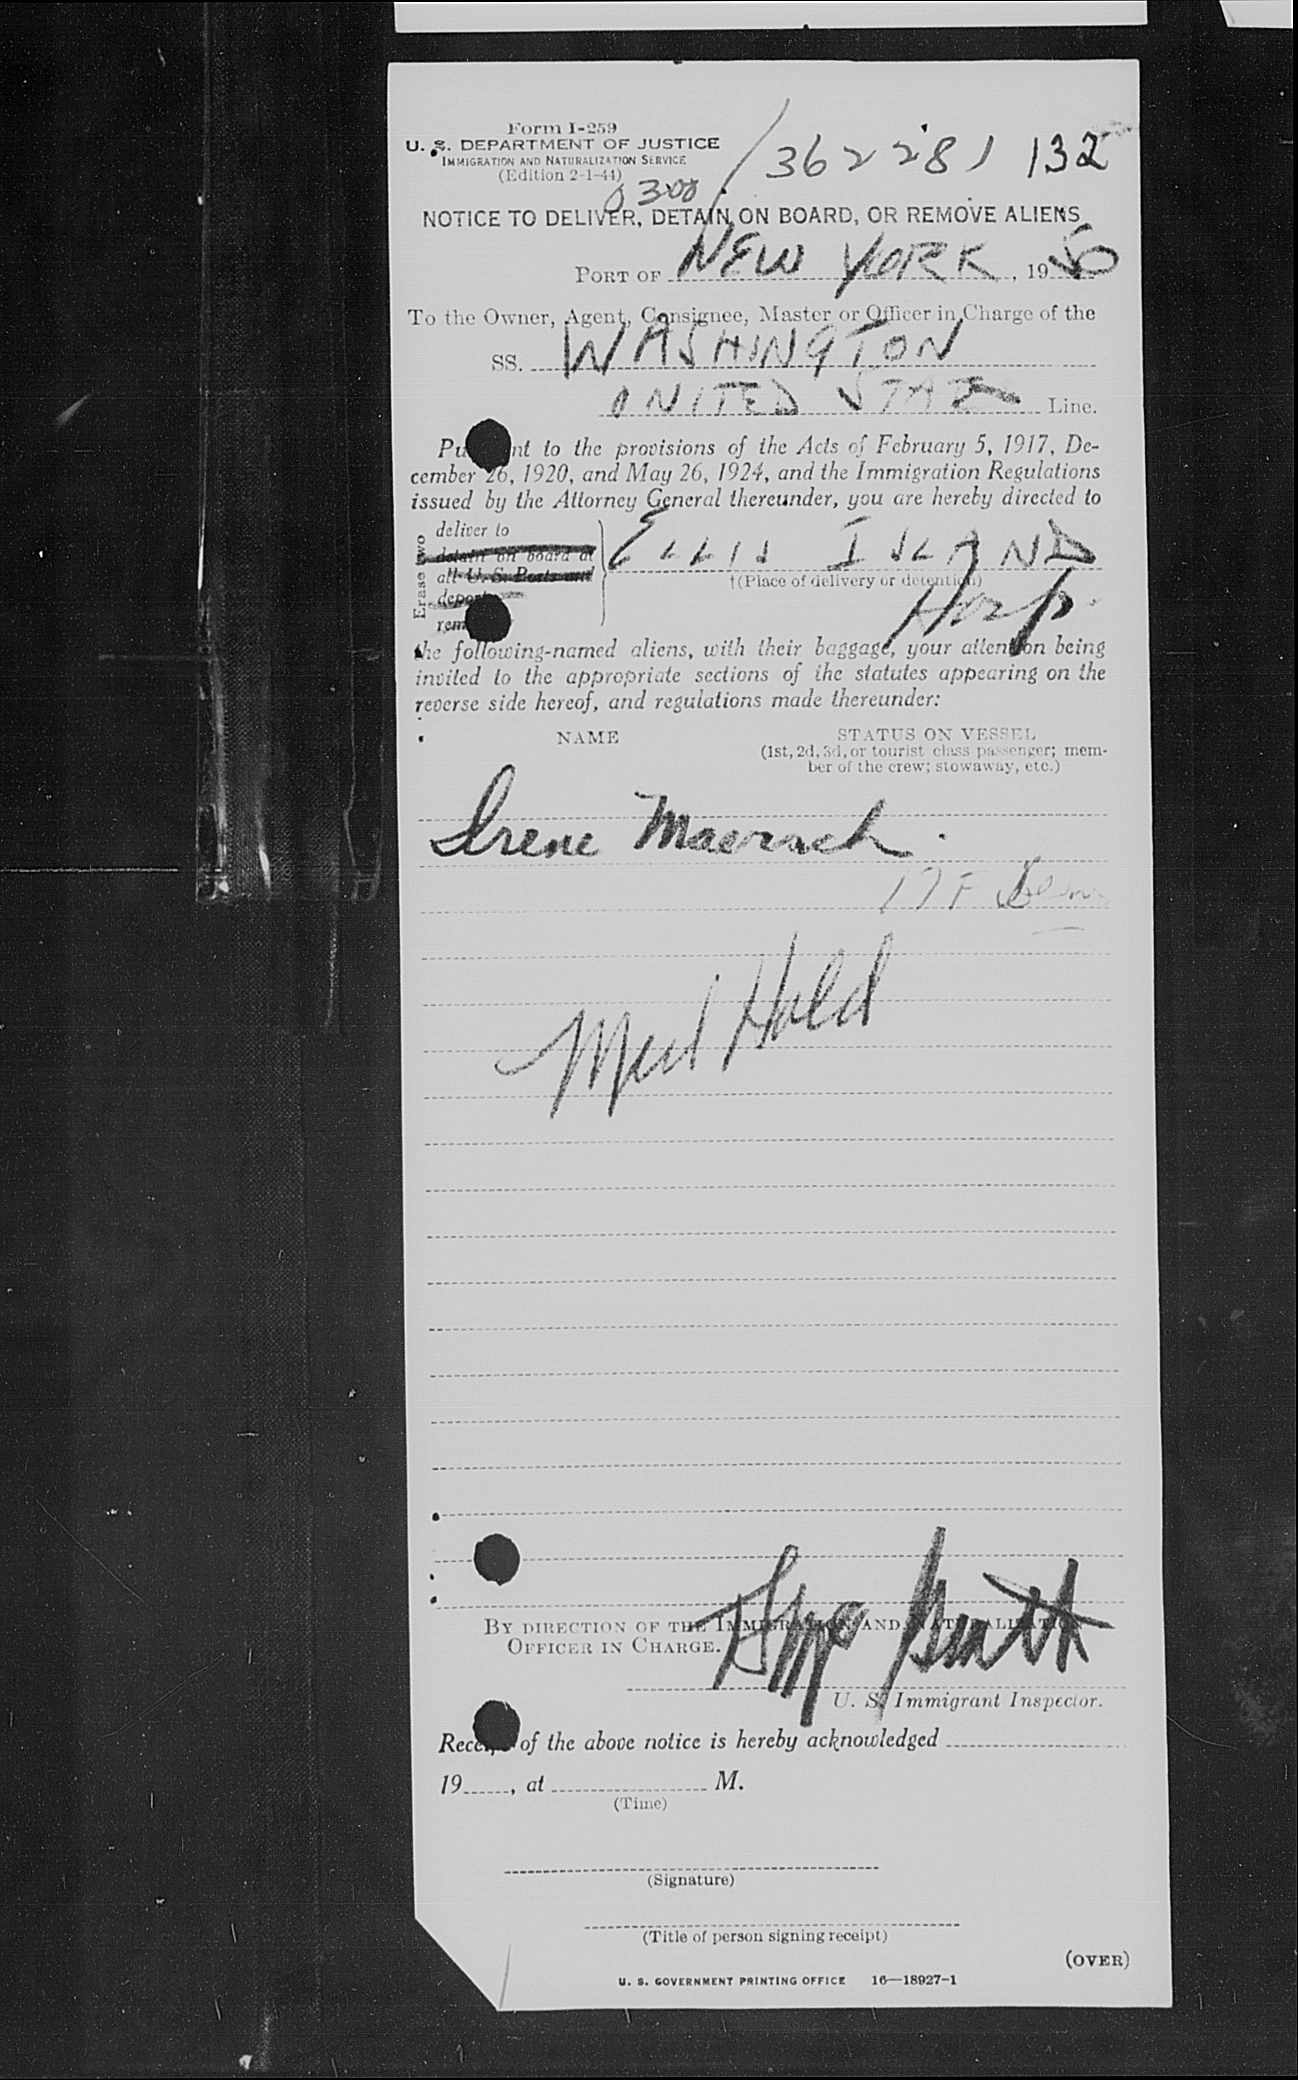 Form I-259
U. S. DEPARTMENT OF JUSTICE
IMMIGRATION AND NATURALIZATION SERVICE
(Edition 2-1-44)
0300 / 362281 132
NOTICE TO DELIVER, DETAIN ON BOARD, OR REMOVE ALIENS
PORT OF NEW YORK, 1950
To the Owner, Agent, Consignee, Master or Officer in Charge of the
SS. WASHINGTON
UNITED STATE Line.
Pu nt to the provisions of the Acts of February 5, 1917, De-
cember 26, 1920, and May 26, 1924, and the Immigration Regulations
issued by the Attorney General thereunder, you are hereby directed to
Erase two
deliver to
detain on board at
all U. S. Ports and
deport
rem
ELLIS ISLAND
†(Place of delivery or detention)
Hosp.
the following-named aliens, with their baggage, your attention being
invited to the appropriate sections of the statutes appearing on the
reverse side hereof, and regulations made thereunder:
NAME STATUS ON VESSEL
(1st, 2d, 3d, or tourist class passenger; mem-
ber of the crew; stowaway, etc.)
Irene
17 F
Med Hold
BY DIRECTION OF THE IMMIGRATION AND NATURALIZATION
OFFICER IN CHARGE.
U. S. Immigrant Inspector.
Receipt of the above notice is hereby acknowledged
19 , at M.
(Time)
(Signature)
(Title of person signing receipt)
(OVER)
U. S. GOVERNMENT PRINTING OFFICE 16—18927-1